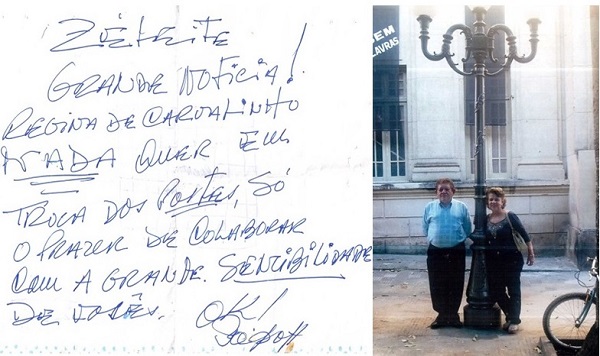 GRANDE NOTÍCIA!
REGINA DE CARVALINHO
NADA QUER EM
TROCA DOS POSTES, SÓ
O PRAZER DE COLABORAR
COM A GRANDE SENSIBILIDADE
DE VOCÊS.
OK!
SEM
LAVRAS